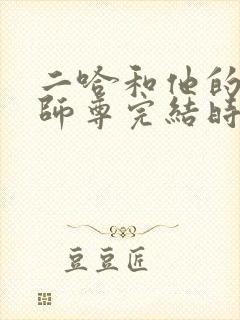 二哈和他的
師尊完結時
豆豆匠